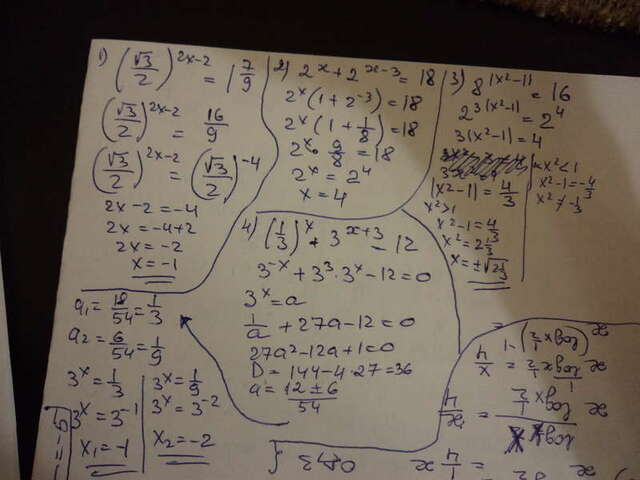 1) (√3/2)^(2x-2) = 1 7/9
(√3/2)^(2x-2) = 16/9
(√3/2)^(2x-2) = (√3/2)^(-4)
2x-2 = -4
2x = -4+2
2x = -2
x = -1
2) 2^x + 2^(x-3) = 18
2^x (1 + 2^(-3)) = 18
2^x (1 + 1/8) = 18
2^x · 9/8 = 18
2^x = 2^4
x = 4
3) 8^|x²-1| = 16
2^(3|x²-1|) = 2^4
3|x²-1| = 4
|x²-1| = 4/3
x² > 1
x²-1 = 4/3
x² = 2 1/3
x = ±√(2 1/3)
x² < 1
x²-1 = -4/3
x² ≠ -1/3
4) (1/3)^x + 3^(x+3) - 12
3^(-x) + 3³·3^x - 12 = 0
3^x = a
1/a + 27a - 12 = 0
27a² - 12a + 1 = 0
D = 144 - 4·27 = 36
a = (12 ± 6)/54
a₁ = 18/54 = 1/3
a₂ = 6/54 = 1/9
3^x = 1/3
3^x = 3^(-1)
x₁ = -1
3^x = 1/9
3^x = 3^(-2)
x₂ = -2